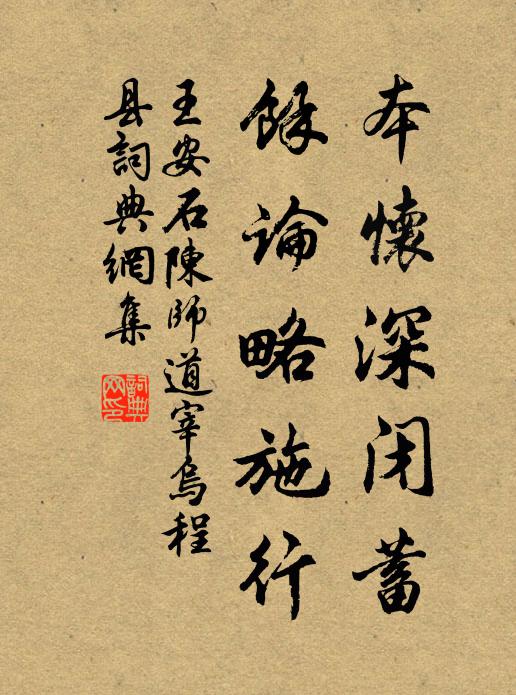 本懷深闭蓄
餘論略施行
王安石陳師道宰烏程
县詞典網集
詞典网印